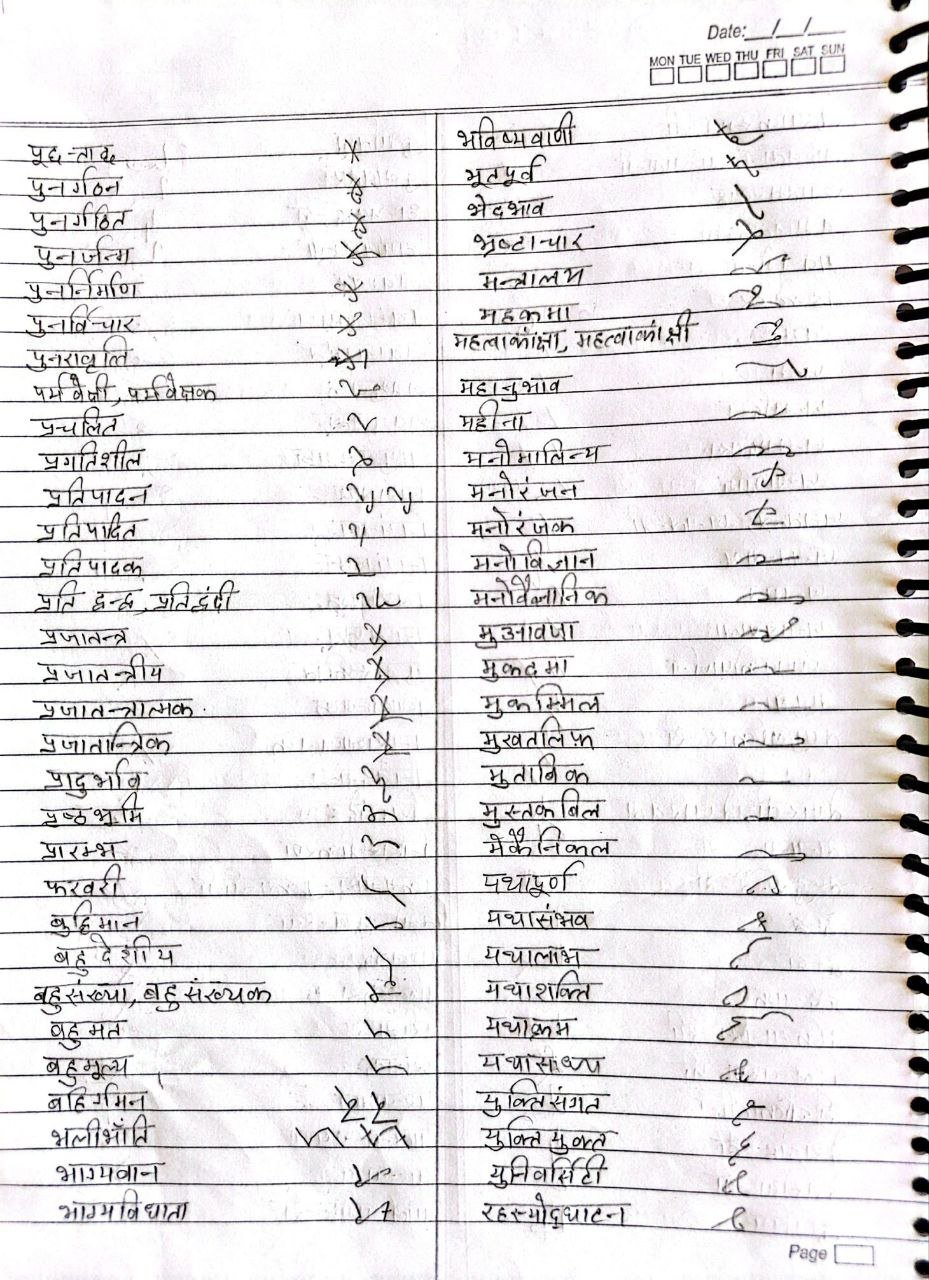 Date:__/__/__
MON TUE WED THU FRI SAT SUN
पूछ-ताछ
पुनर्गठन
पुनर्गठित
पुनर्जन्म
पुनर्निर्माण
पुनर्विचार
पुनरावृति
पर्यवेक्षी, पर्यवेक्षक
प्रचलित
प्रगतिशील
प्रतिपादन
प्रतिपादित
प्रतिपादक
प्रति द्वन्द्व, प्रतिद्वंदी
प्रजातन्त्र
प्रजातन्त्रीय
प्रजातन्त्रात्मक
प्रजातान्त्रिक
प्रादुर्भाव
प्रष्ठभूमि
प्रारम्भ
फरवरी
बुद्धिमान
बहुदेशीय
बहुसंख्या, बहुसंख्यक
बहुमत
बहुमूल्य
बहिर्गमन
भलीभाँति
भाग्यवान
भाग्यविधाता
भविष्यवाणी
भूतपूर्व
भेदभाव
भ्रष्टाचार
मन्त्रालय
महकमा
महत्वाकांक्षा, महत्वाकांक्षी
महानुभाव
महीना
मनोमालिन्य
मनोरंजन
मनोरंजक
मनोविज्ञान
मनोवैज्ञानिक
मुआवजा
मुकदमा
मुकम्मिल
मुखतलिफ़
मुताबिक
मुस्तकबिल
मेकैनिकल
यथापूर्ण
यथासंभव
यथालाभ
यथाशक्ति
यथाक्रम
यथासाध्य
युक्तिसंगत
युक्तियुक्त
युनिवर्सिटी
रहस्योद्घाटन
Page